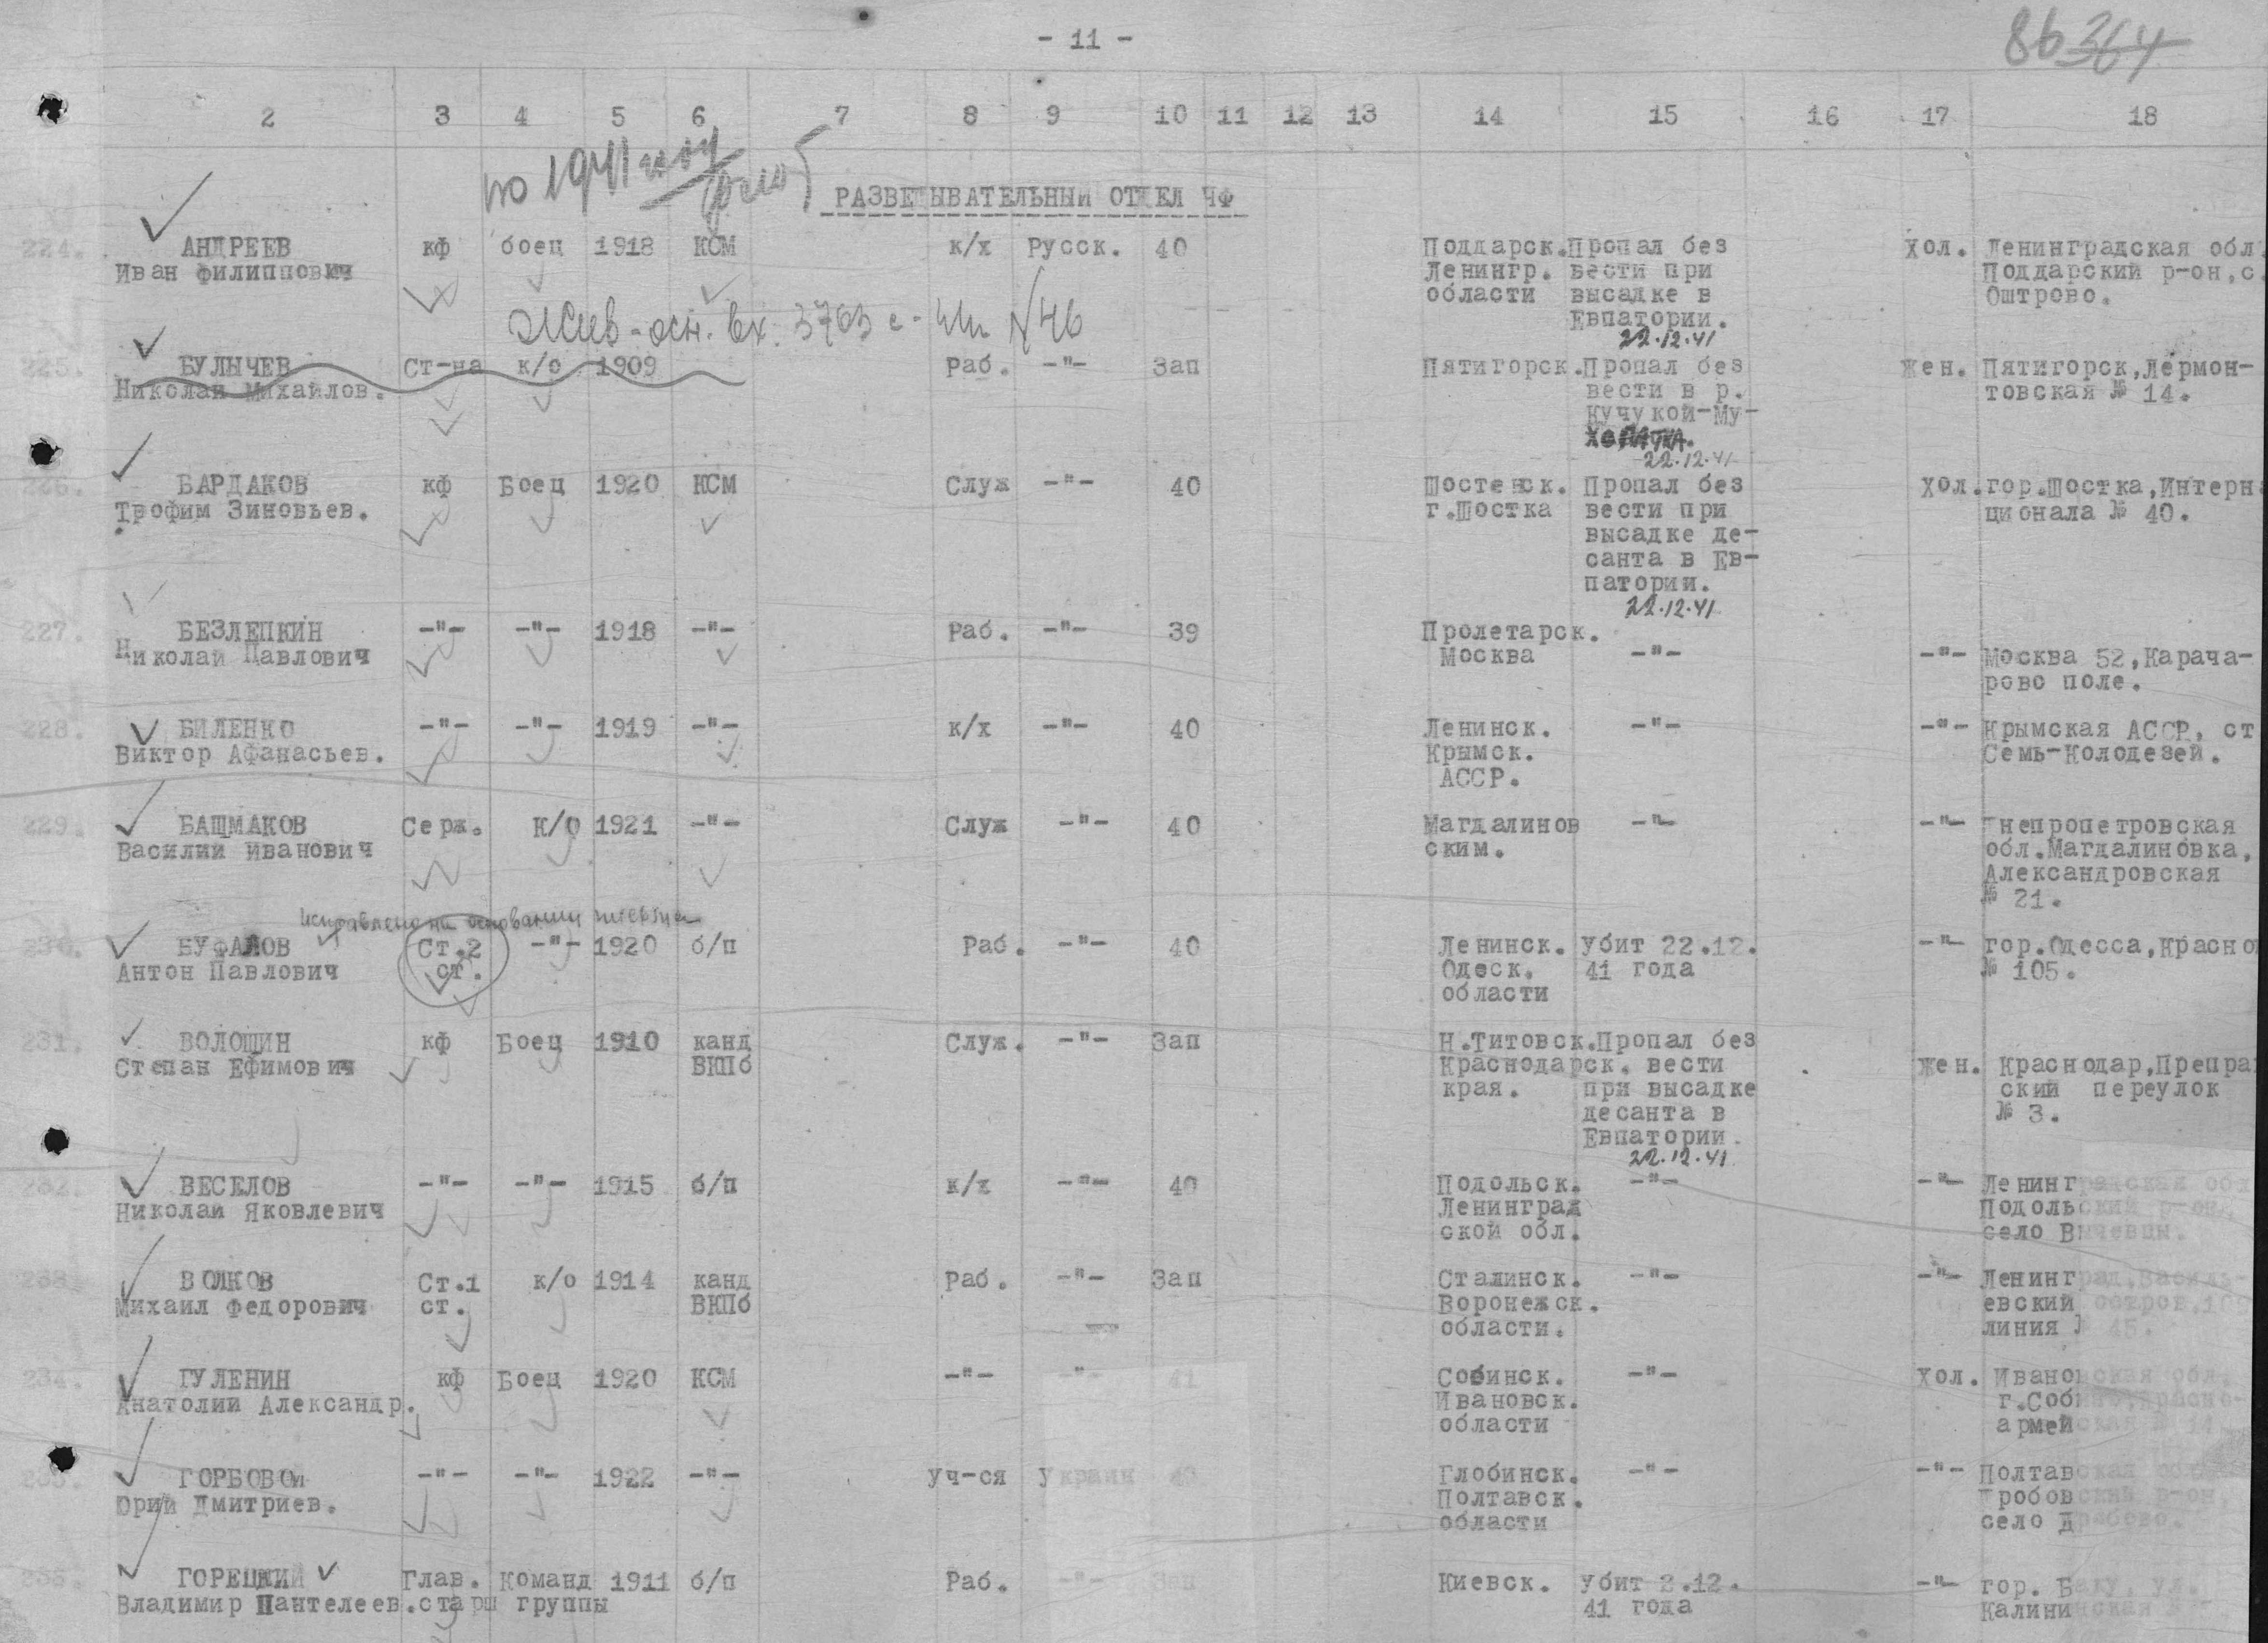 - 11 -
86 364
2 3 4 5 6 7 8 9 10 11 12 13 14 15 16 17 18
по 1941 году
РАЗВЕДЫВАТЕЛЬНЫЙ ОТДЕЛ ЧФ
224. АНДРЕЕВ кф боец 1918 КСМ к/х Русск. 40 Поддарск. Пропал без Хол. Ленинградская обл.
Иван Филиппович Ленингр. вести при Поддарский р-он, с.
области высадке в Оштрово.
Евпатории.
22.12.41
Жив - осн. вх. 3763 с - 46
225. БУЛЫЧЕВ Ст-на к/о 1909 Раб. -"- Зап Пятигорск. Пропал без Жен. Пятигорск, Лермон-
Николай Михайлов. вести в р. товская № 14.
Кучукой-Му-
ХаЛАТКА.
22.12.41
226. БАРДАКОВ кф Боец 1920 КСМ Служ -"- 40 Шостенск. Пропал без Хол. гор.Шостка, Интерна
Трофим Зиновьев. г.Шостка вести при ционала № 40.
высадке де-
санта в Ев-
патории.
22.12.41
227. БЕЗЛЕПКИН -"- -"- 1918 -"- Раб. -"- 39 Пролетарск.
Николай Павлович Москва -"- -"- Москва 52, Карача-
рово поле.
228. БИЛЕНКО -"- -"- 1919 -"- к/х -"- 40 Ленинск. -"- -"- Крымская АССР, ст
Виктор Афанасьев. Крымск. Семь-Колодезей.
АССР.
229. БАШМАКОВ Серж. К/О 1921 -"- Служ -"- 40 Магдалинов -"- -"- Днепропетровская
Василий Иванович ским. обл.Магдалиновка,
Александровская
№ 21.
исправлено на основании
230. БУФАЛОВ Ст.2 -"- 1920 б/п Раб. -"- 40 Ленинск. Убит 22.12. -"- гор.Одесса, Красно
Антон Павлович ст. Одеск. 41 года № 105.
области
231. ВОЛОШИН кф Боец 1910 канд Служ. -"- Зап Н.Титовск. Пропал без
Степан Ефимович ВКПб Краснодарск. вести Жен. Краснодар, Препра
края. при высадке ский переулок
десанта в № 3.
Евпатории.
22.12.41
232. ВЕСЕЛОВ -"- -"- 1915 б/п к/х -"- 40 Подольск. -"- -"- Ленинградская обл
Николай Яковлевич Ленинград Подольский р-он,
ской обл. село Вычевцы.
233. ВОЛКОВ Ст.1 к/о 1914 канд Раб. -"- Зап Сталинск. -"- -"- Ленинград, Василь-
Михаил Федорович ст. ВКПб Воронежск. евский остров,
области. линия № 45.
234. ГУЛЕНИН кф Боец 1920 КСМ -"- -"- 41 Собинск. -"- Хол. Ивановская обл.
Анатолий Александр. Ивановск. г.Собино, Красно-
области армейская № 14
235. ГОРБОВОЙ -"- -"- 1922 -"- Уч-ся Украин 40 Глобинск. -"- -"- Полтавская
Юрий Дмитриев. Полтавск. р-он,
области село
236. ГОРЕЦКИЙ Глав. Команд 1911 б/п Раб. -"- Зап Киевск. Убит 2.12. -"- гор. Баку, ул.
Владимир Пантелеев. старш группы 41 года Калининская №